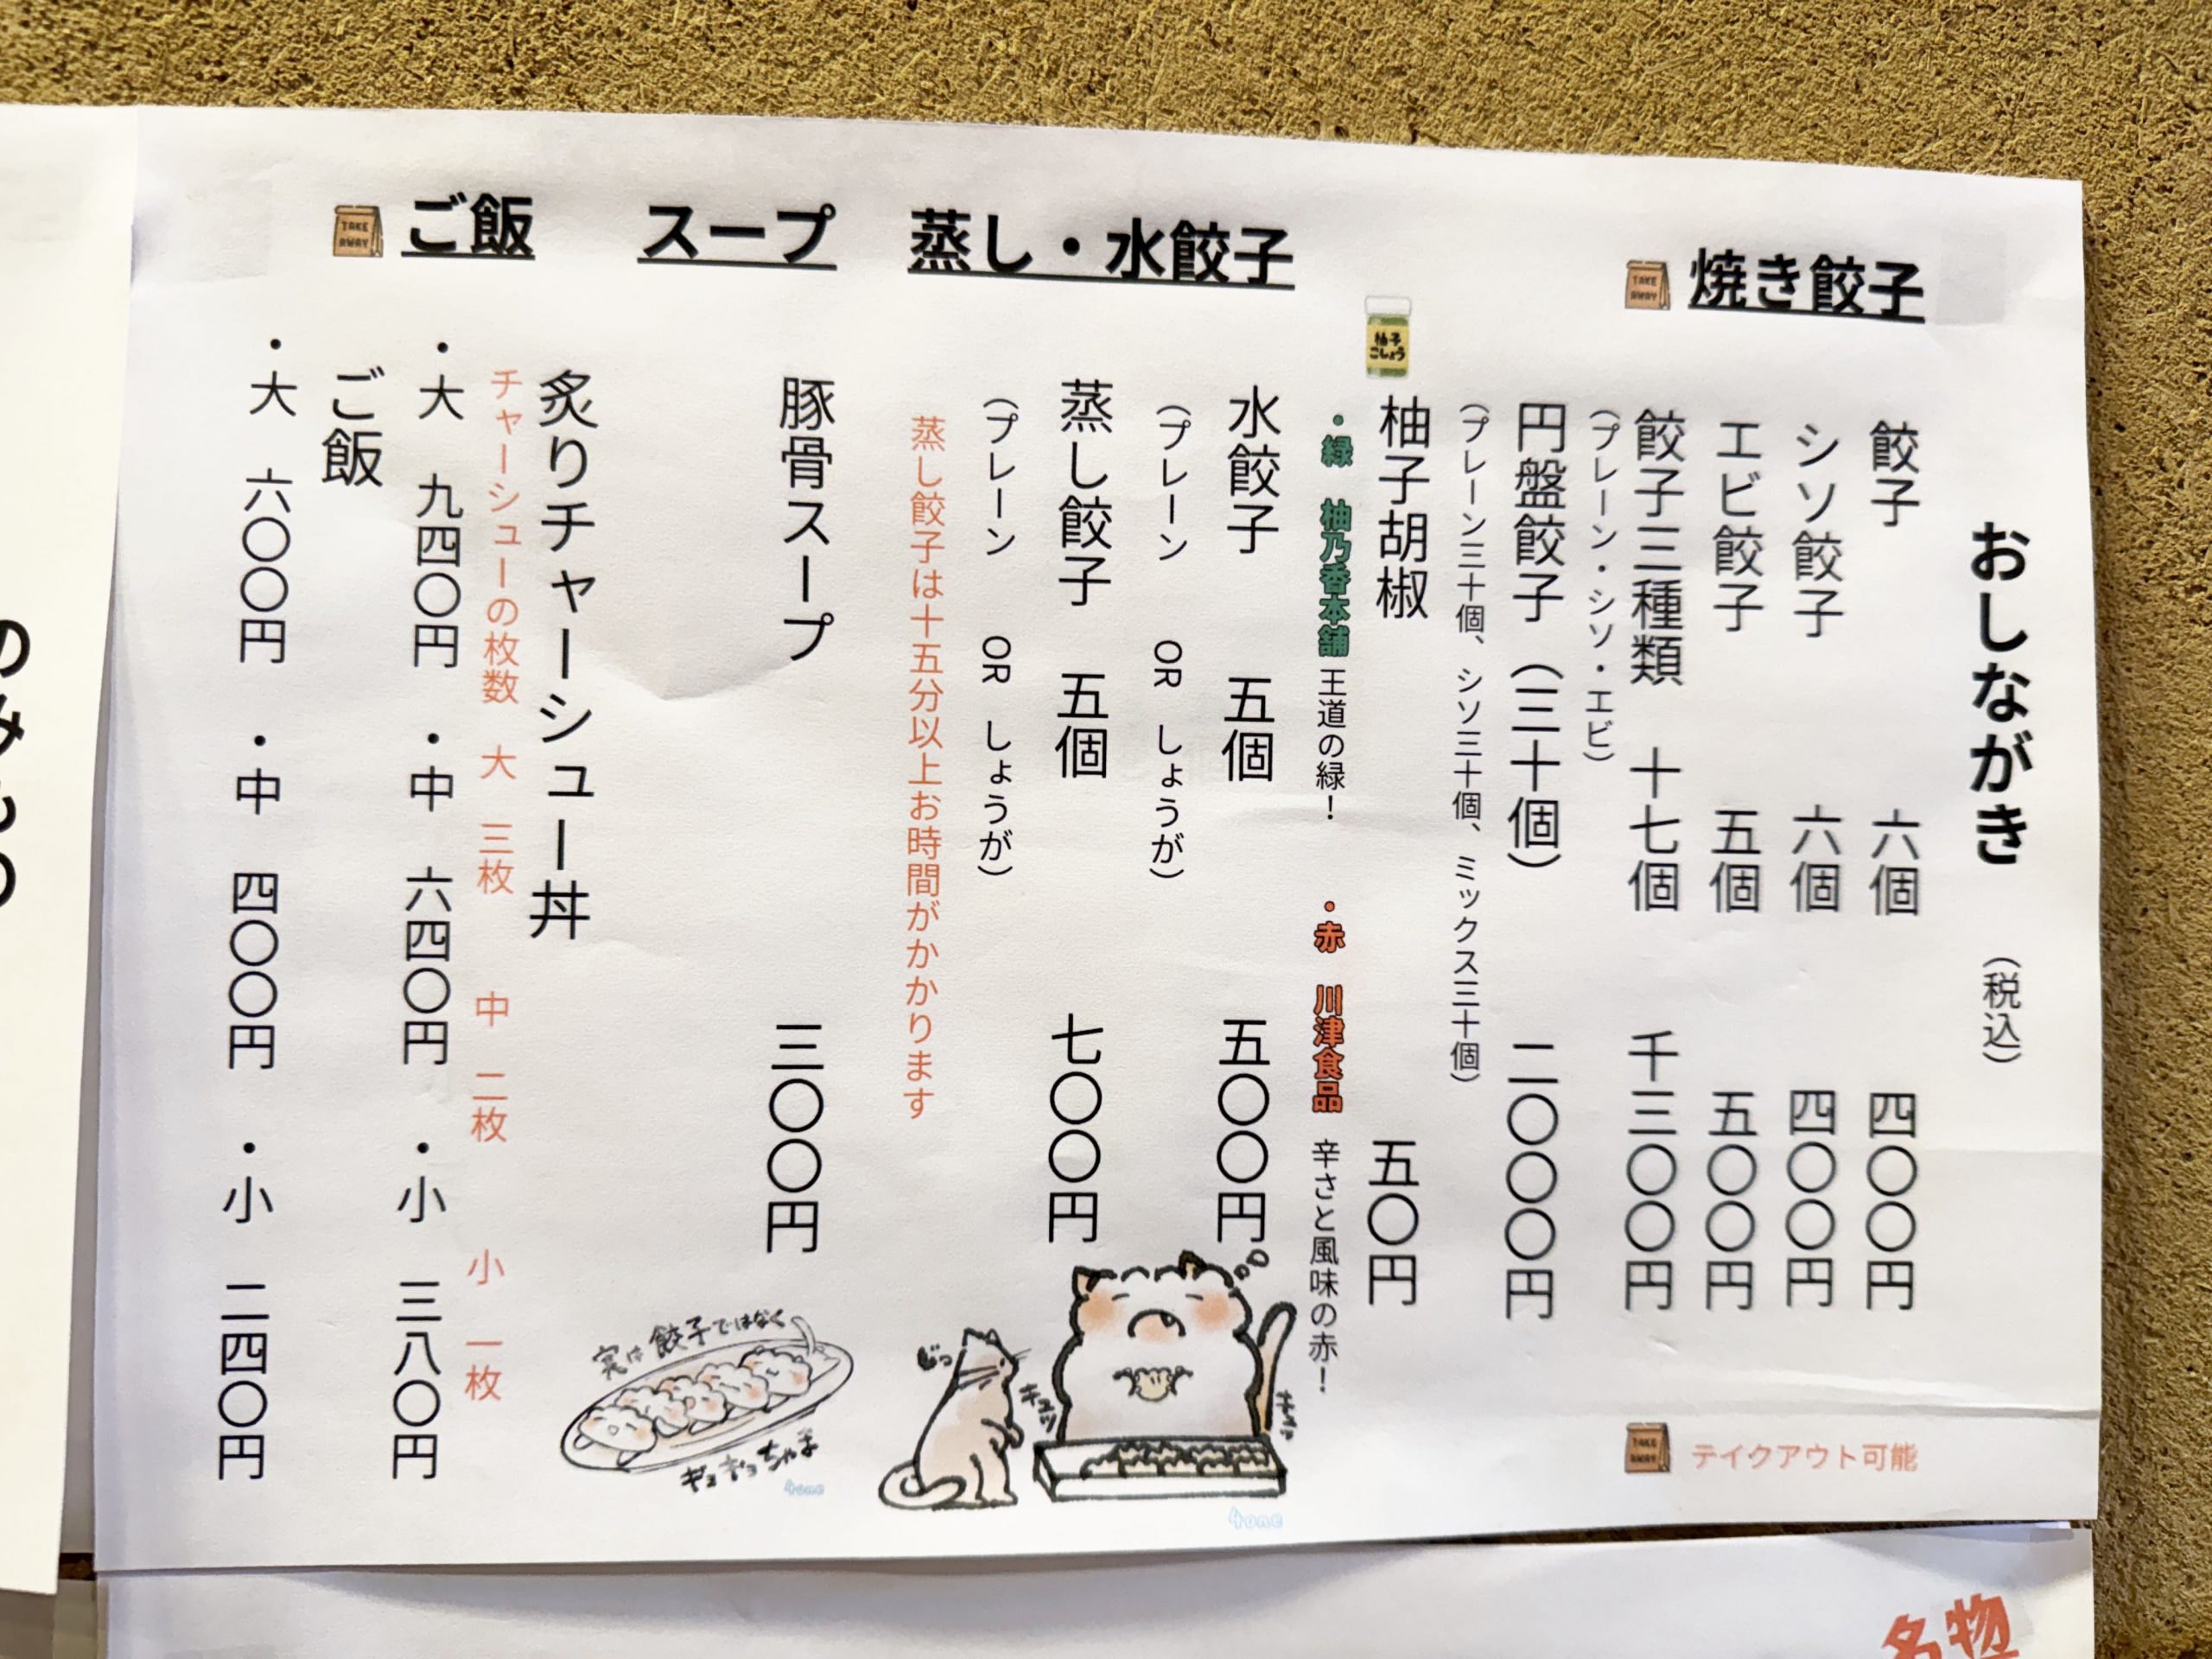 おしながき （税込）
焼き餃子
TAKE AWAY
餃子 六個 四〇〇円
シソ餃子 六個 四〇〇円
エビ餃子 五個 五〇〇円
餃子三種類 十七個 千三〇〇円
（プレーン・シソ・エビ）
円盤餃子（三十個） 二〇〇〇円
（プレーン三十個、シソ三十個、ミックス三十個）
柚子こしょう
柚子胡椒 五〇円
・緑 柚乃香本舗 王道の緑！ ・赤 川津食品 辛さと風味の赤！
TAKE AWAY
テイクアウト可能
蒸し・水餃子
水餃子 五個 五〇〇円
（プレーン OR しょうが）
蒸し餃子 五個 七〇〇円
（プレーン OR しょうが）
蒸し餃子は十五分以上お時間がかかります
スープ
豚骨スープ 三〇〇円
ご飯
TAKE AWAY
炙りチャーシュー丼
チャーシューの枚数 大 三枚 中 二枚 小 一枚
・大 九四〇円 ・中 六四〇円 ・小 三八〇円
ご飯
・大 六〇〇円 ・中 四〇〇円 ・小 二四〇円
じっ
キュッ
4one
実は餃子ではなく
ギョギョちゃま
4one
のみもの
名物